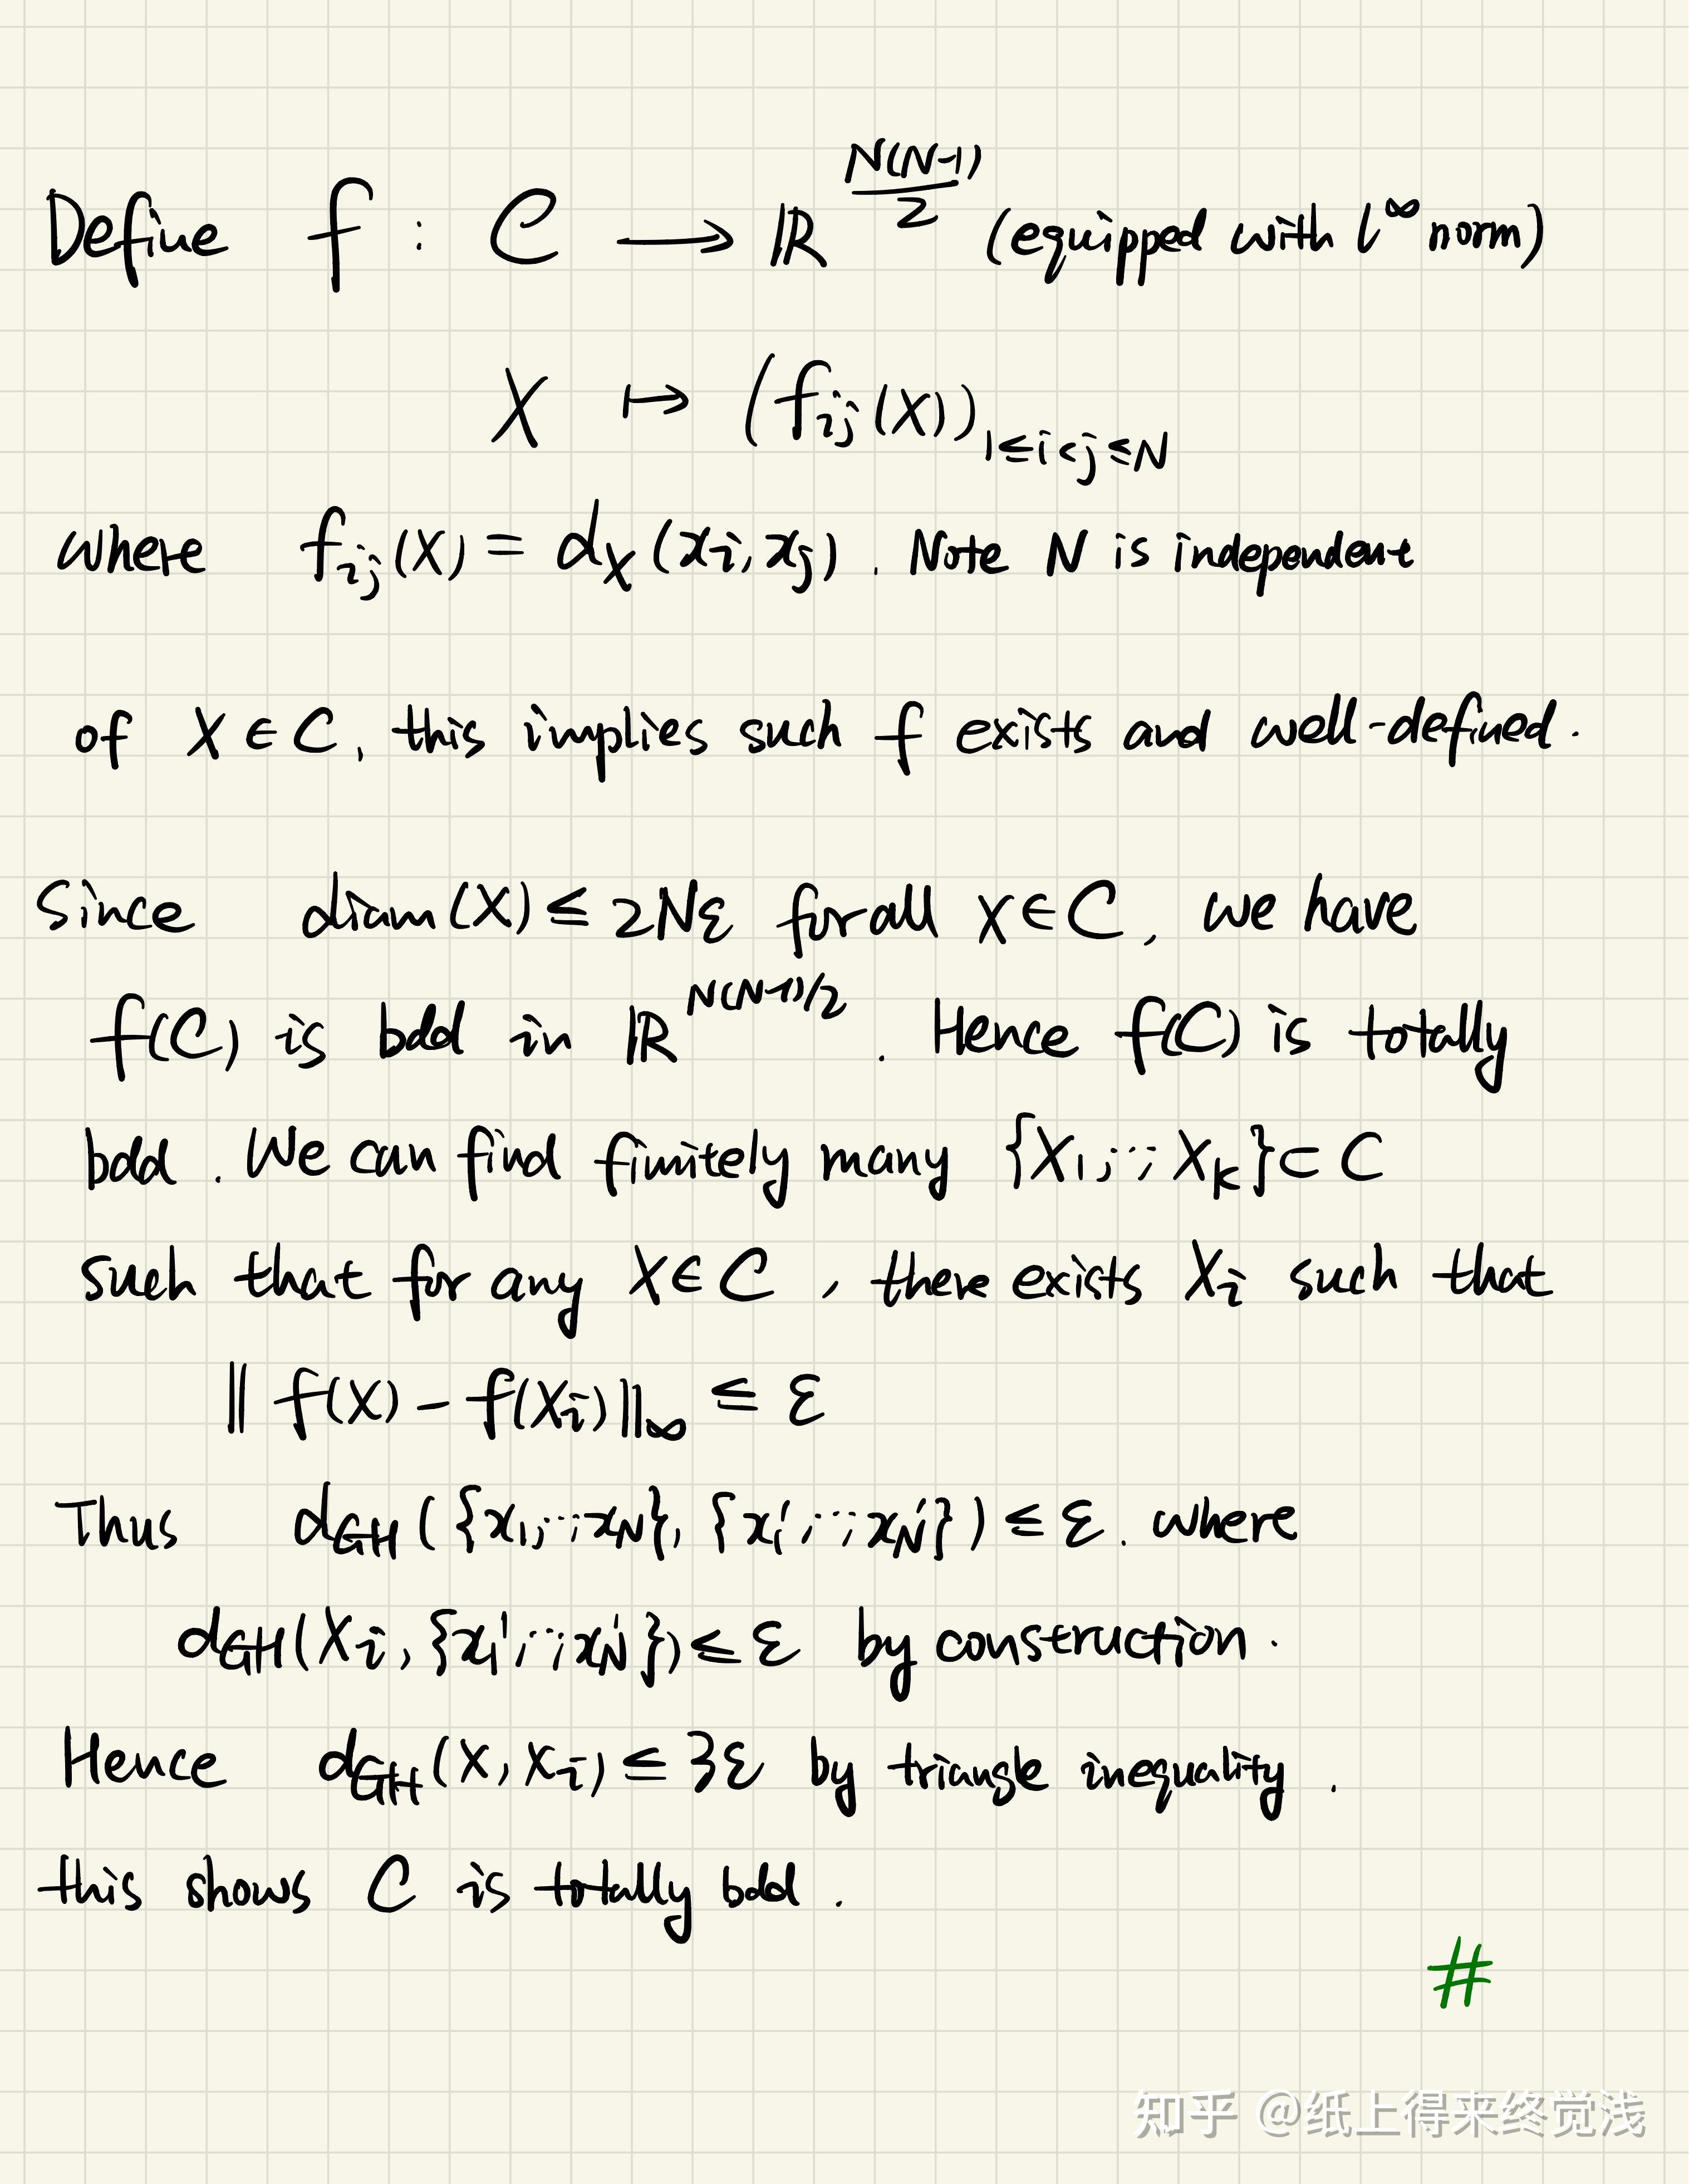 Define f : C → ℝ^{N(N-1)/2} (equipped with l^∞ norm)
X ↦ (f_{ij}(X))_{1≤i<j≤N}
where f_{ij}(X) = d_X(x_i, x_j). Note N is independent
of X ∈ C, this implies such f exists and well-defined.
Since diam(X) ≤ 2Nε for all X ∈ C, we have
f(C) is bdd in ℝ^{N(N-1)/2}. Hence f(C) is totally
bdd. We can find finitely many {X_1,...,X_k} ⊂ C
such that for any X ∈ C, there exists X_i such that
‖f(X) - f(X_i)‖_∞ ≤ ε
Thus d_{GH}({x_1,...,x_N}, {x_1',...,x_N'}) ≤ ε. where
d_{GH}(X_i, {x_1',...,x_N'}) ≤ ε by construction.
Hence d_{GH}(X, X_i) ≤ 3ε by triangle inequality.
this shows C is totally bdd.
#
知乎 @纸上得来终觉浅